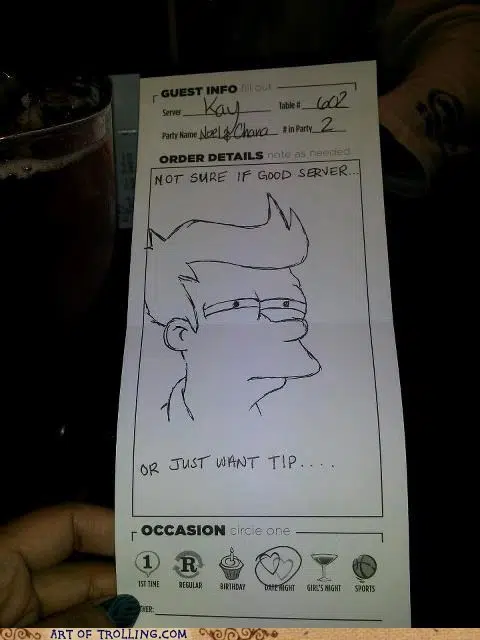 GUEST INFO fill out
Server Kay Table # 602
Party Name Noel & Chana # in Party 2
ORDER DETAILS note as needed
NOT SURE IF GOOD SERVER...
OR JUST WANT TIP....
OCCASION circle one
1
R
1ST TIME REGULAR BIRTHDAY DATE NIGHT GIRL'S NIGHT SPORTS
ART OF TROLLING.COM